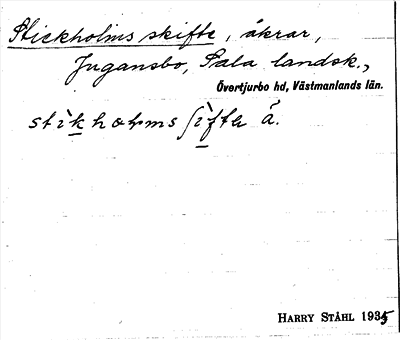 Stickholms skifte, åkrar,
Jugansbo, Sala landsk.,
Övertjurbo hd, Västmanlands län.
stìkhoɫms ʃìfta å.
HARRY STÅHL 1935